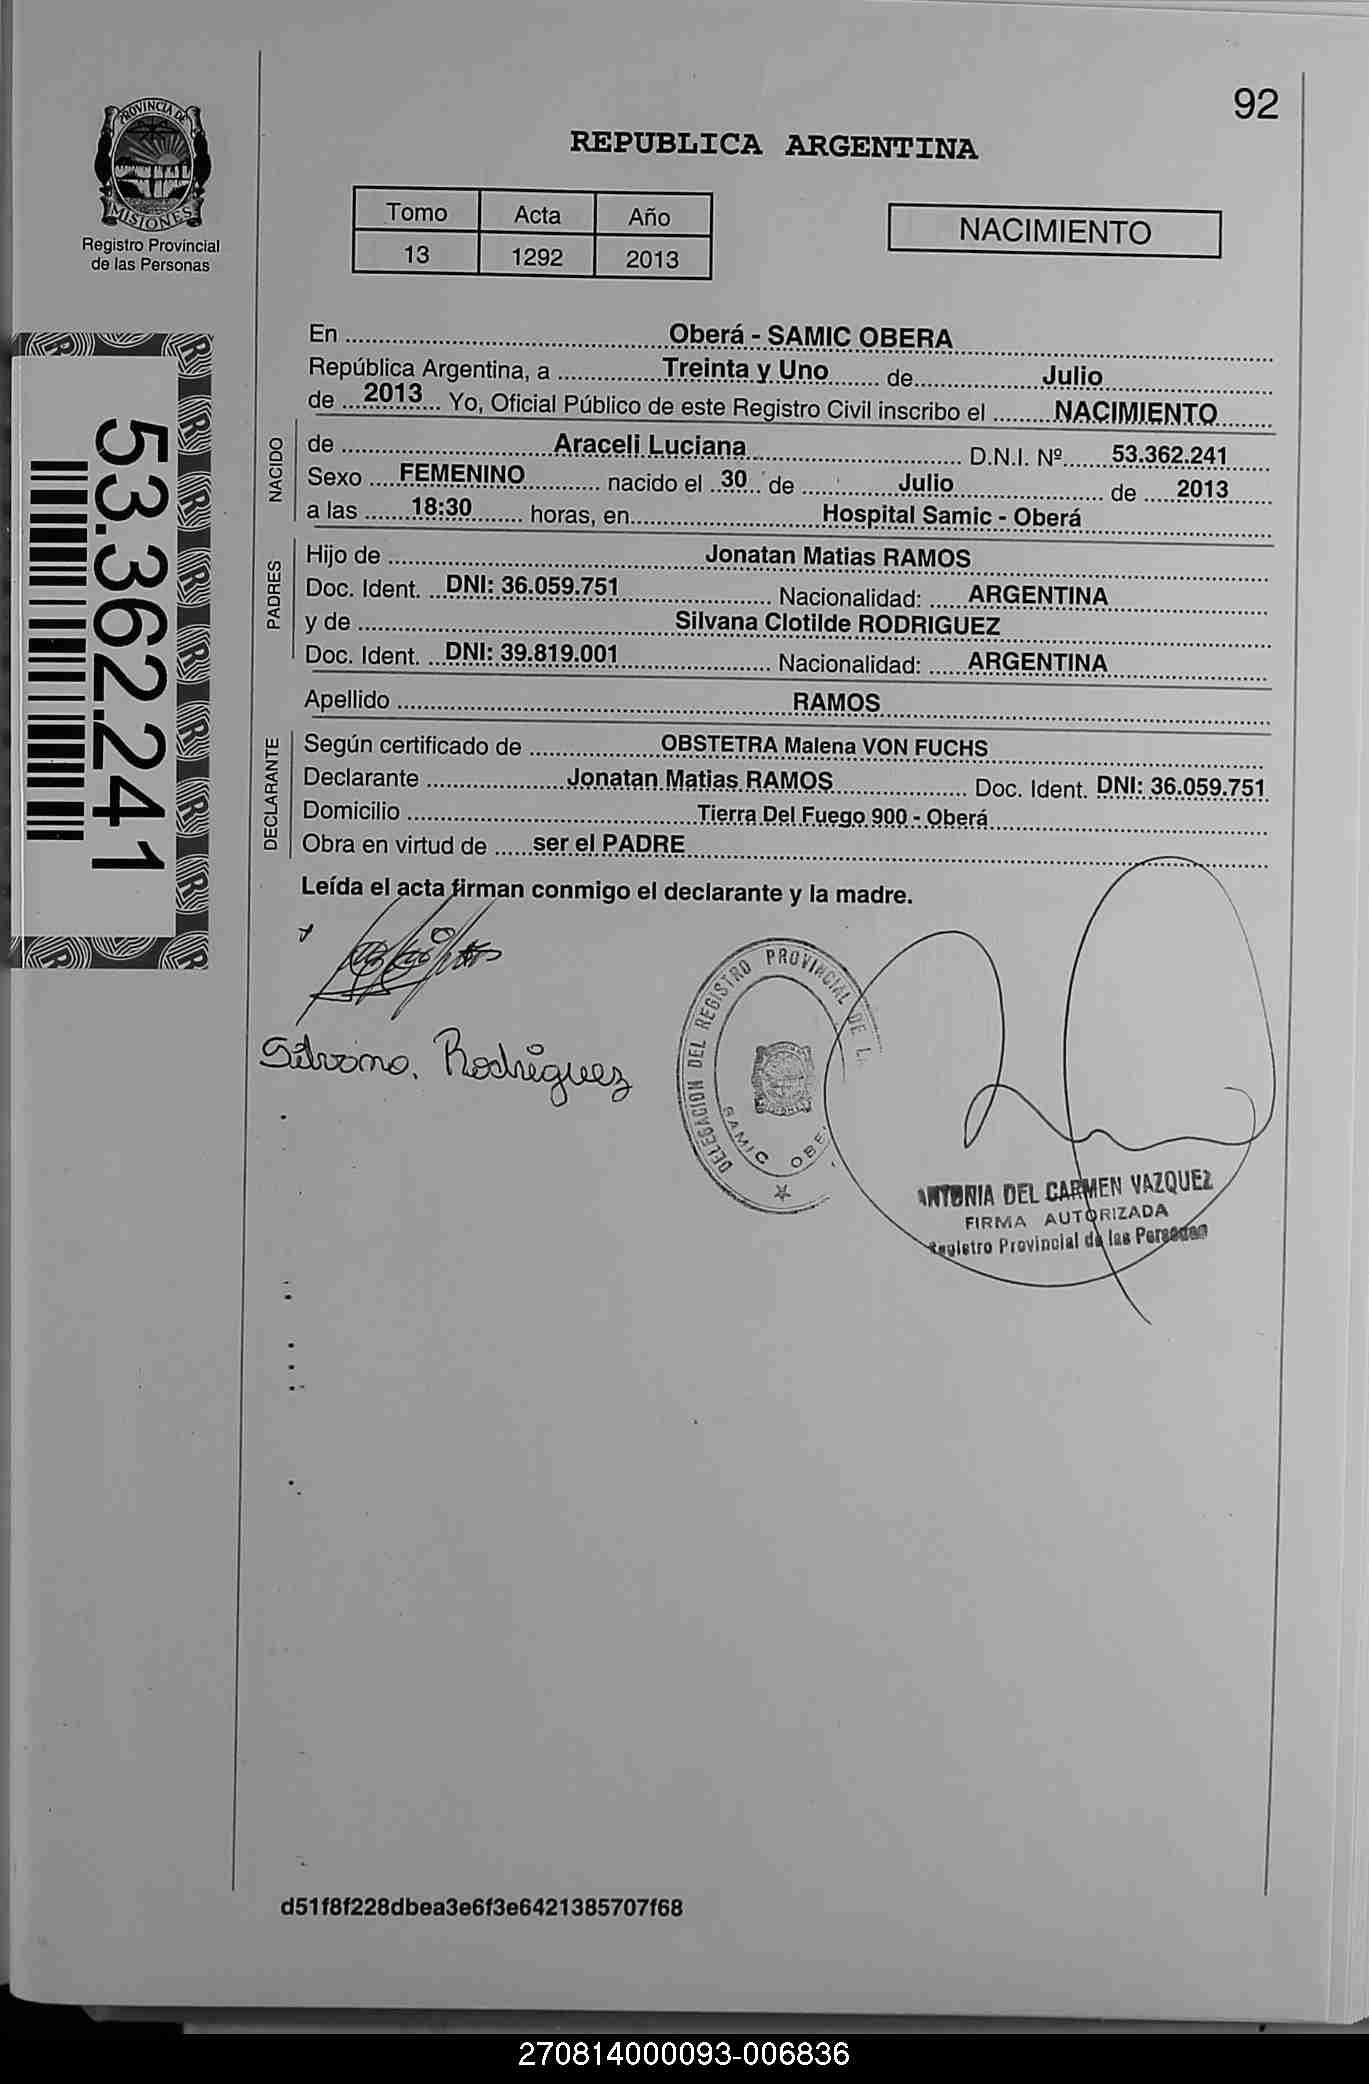 92
PROVINCIA DE
MISIONES
Registro Provincial
de las Personas
REPUBLICA ARGENTINA
Tomo Acta Año
13 1292 2013
NACIMIENTO
53.362.241
En Oberá - SAMIC OBERA
República Argentina, a Treinta y Uno de Julio
de 2013 Yo, Oficial Público de este Registro Civil inscribo el NACIMIENTO
NACIDO
de Araceli Luciana D.N.I. Nº 53.362.241
Sexo FEMENINO nacido el 30 de Julio de 2013
a las 18:30 horas, en Hospital Samic - Oberá
PADRES
Hijo de Jonatan Matias RAMOS
Doc. Ident. DNI: 36.059.751 Nacionalidad: ARGENTINA
y de Silvana Clotilde RODRIGUEZ
Doc. Ident. DNI: 39.819.001 Nacionalidad: ARGENTINA
Apellido RAMOS
DECLARANTE
Según certificado de OBSTETRA Malena VON FUCHS
Declarante Jonatan Matias RAMOS Doc. Ident. DNI: 36.059.751
Domicilio Tierra Del Fuego 900 - Oberá
Obra en virtud de ser el PADRE
Leída el acta firman conmigo el declarante y la madre.
Silvana. Rodriguez
DELEGACION DEL REGISTRO PROVINCIAL DE L
SAMIC OBE
ANTONIA DEL CARMEN VAZQUEZ
FIRMA AUTORIZADA
Registro Provincial de las Personas
d51f8f228dbea3e6f3e6421385707f68
270814000093-006836